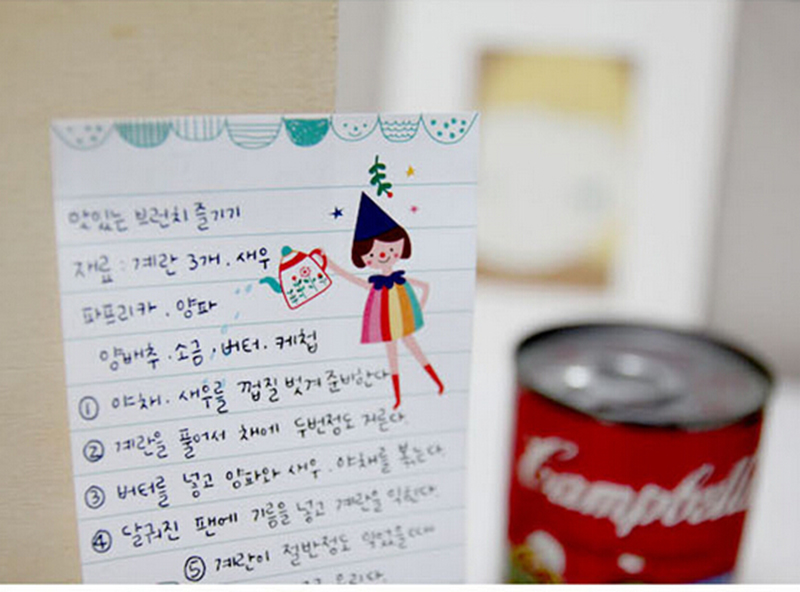 맛있는 브런치 즐기기
재료 : 계란 3개 . 새우
파프리카 . 양파
양배추 . 소금 , 버터 . 케첩
① 야채 . 새우를 껍질 벗겨 준비한다.
② 계란을 풀어서 체에 두번정도 거른다.
③ 버터를 넣고 양파와 새우 . 야채를 볶는다.
④ 달궈진 팬에 기름을 넣고 계란을 익힌다.
⑤ 계란이 절반정도 익었을때
올린다.
Campbell